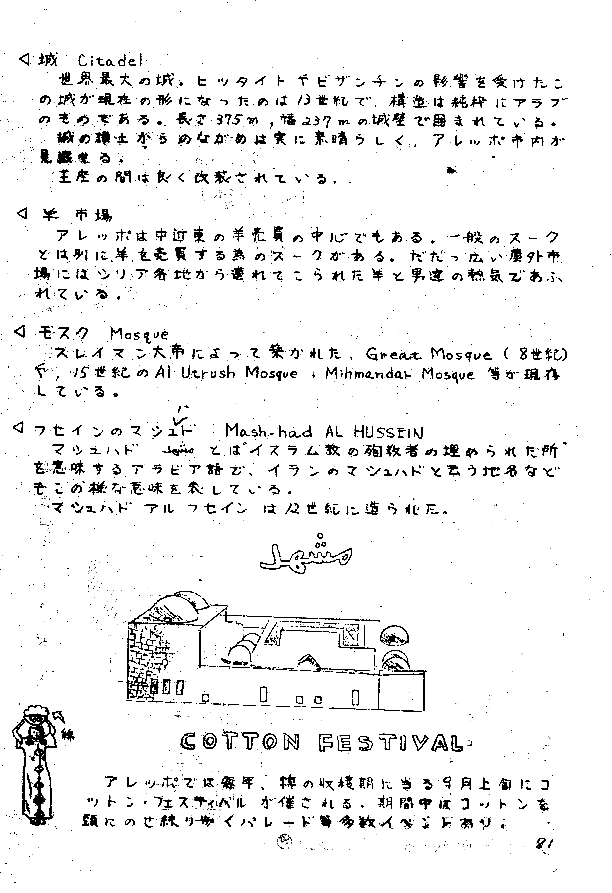 ◁ 城 Citadel
世界最大の城。ヒッタイトやビザンチンの影響を受けたこ
の城が現在の形になったのは13世紀で、構造は純粋にアラブ
のものである。長さ375m，幅237mの城壁で囲まれている。
城の頂上からのながめは実に素晴らしく、アレッポ市内が
見渡せる。
王座の間は良く改装されている。
◁ 羊 市場
アレッポは中近東の羊売買の中心でもある。一般のスーク
とは別に羊を売買する為のスークがある。だだっ広い屋外市
場にはシリア各地から連れてこられた羊と男達の熱気であふ
れている。
◁ モスク Mosque
スレイマン大帝によって築かれた、Great Mosque (8世紀)
や，15世紀のAl Utrush Mosque , Mihmandar Mosque 等が現存
している。
◁ フセインのマシュハド Mash-had AL HUSSEIN
マシュハド とはイスラム教の殉教者の埋められた所
を意味するアラビア語で、イランのマシュハドと云う地名など
もこの様な意味を表している。
マシュハド アル フセイン は12世紀に造られた。
綿
COTTON FESTIVAL
アレッポでは毎年、棉の収穫期に当る9月上旬にコ
ットン・フェスティバル が催される。期間中はコットンを
頭にのせ練り歩くパレード等多数イベントあり。
81